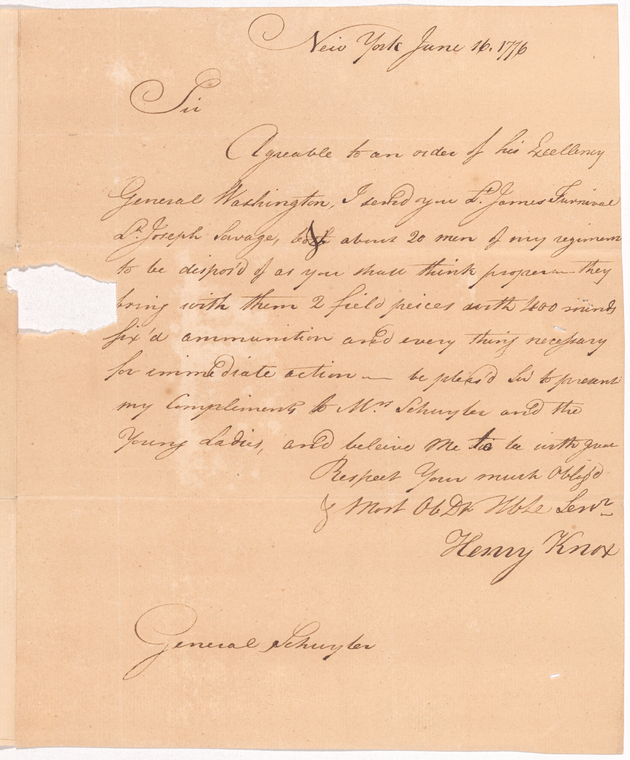 New York June 16. 1776
Sir
Agreable to an order of his Excellency
General Washington, I send you Lt. James Furnival
Lt. Joseph Savage, & about 20 men of my regiment
to be dispos'd of as you shall think proper — they
bring with them 2 field peices with 400 rounds
fix'd ammunition and every thing necessary
for immediate action — be pleas'd Sir to present
my Compliments to Mrs Schuyler and the
Young Ladies, and beleive me to be with great
Respect Your much Oblig'd
& Most Obdt Hble Servt
Henry Knox
General Schuyler